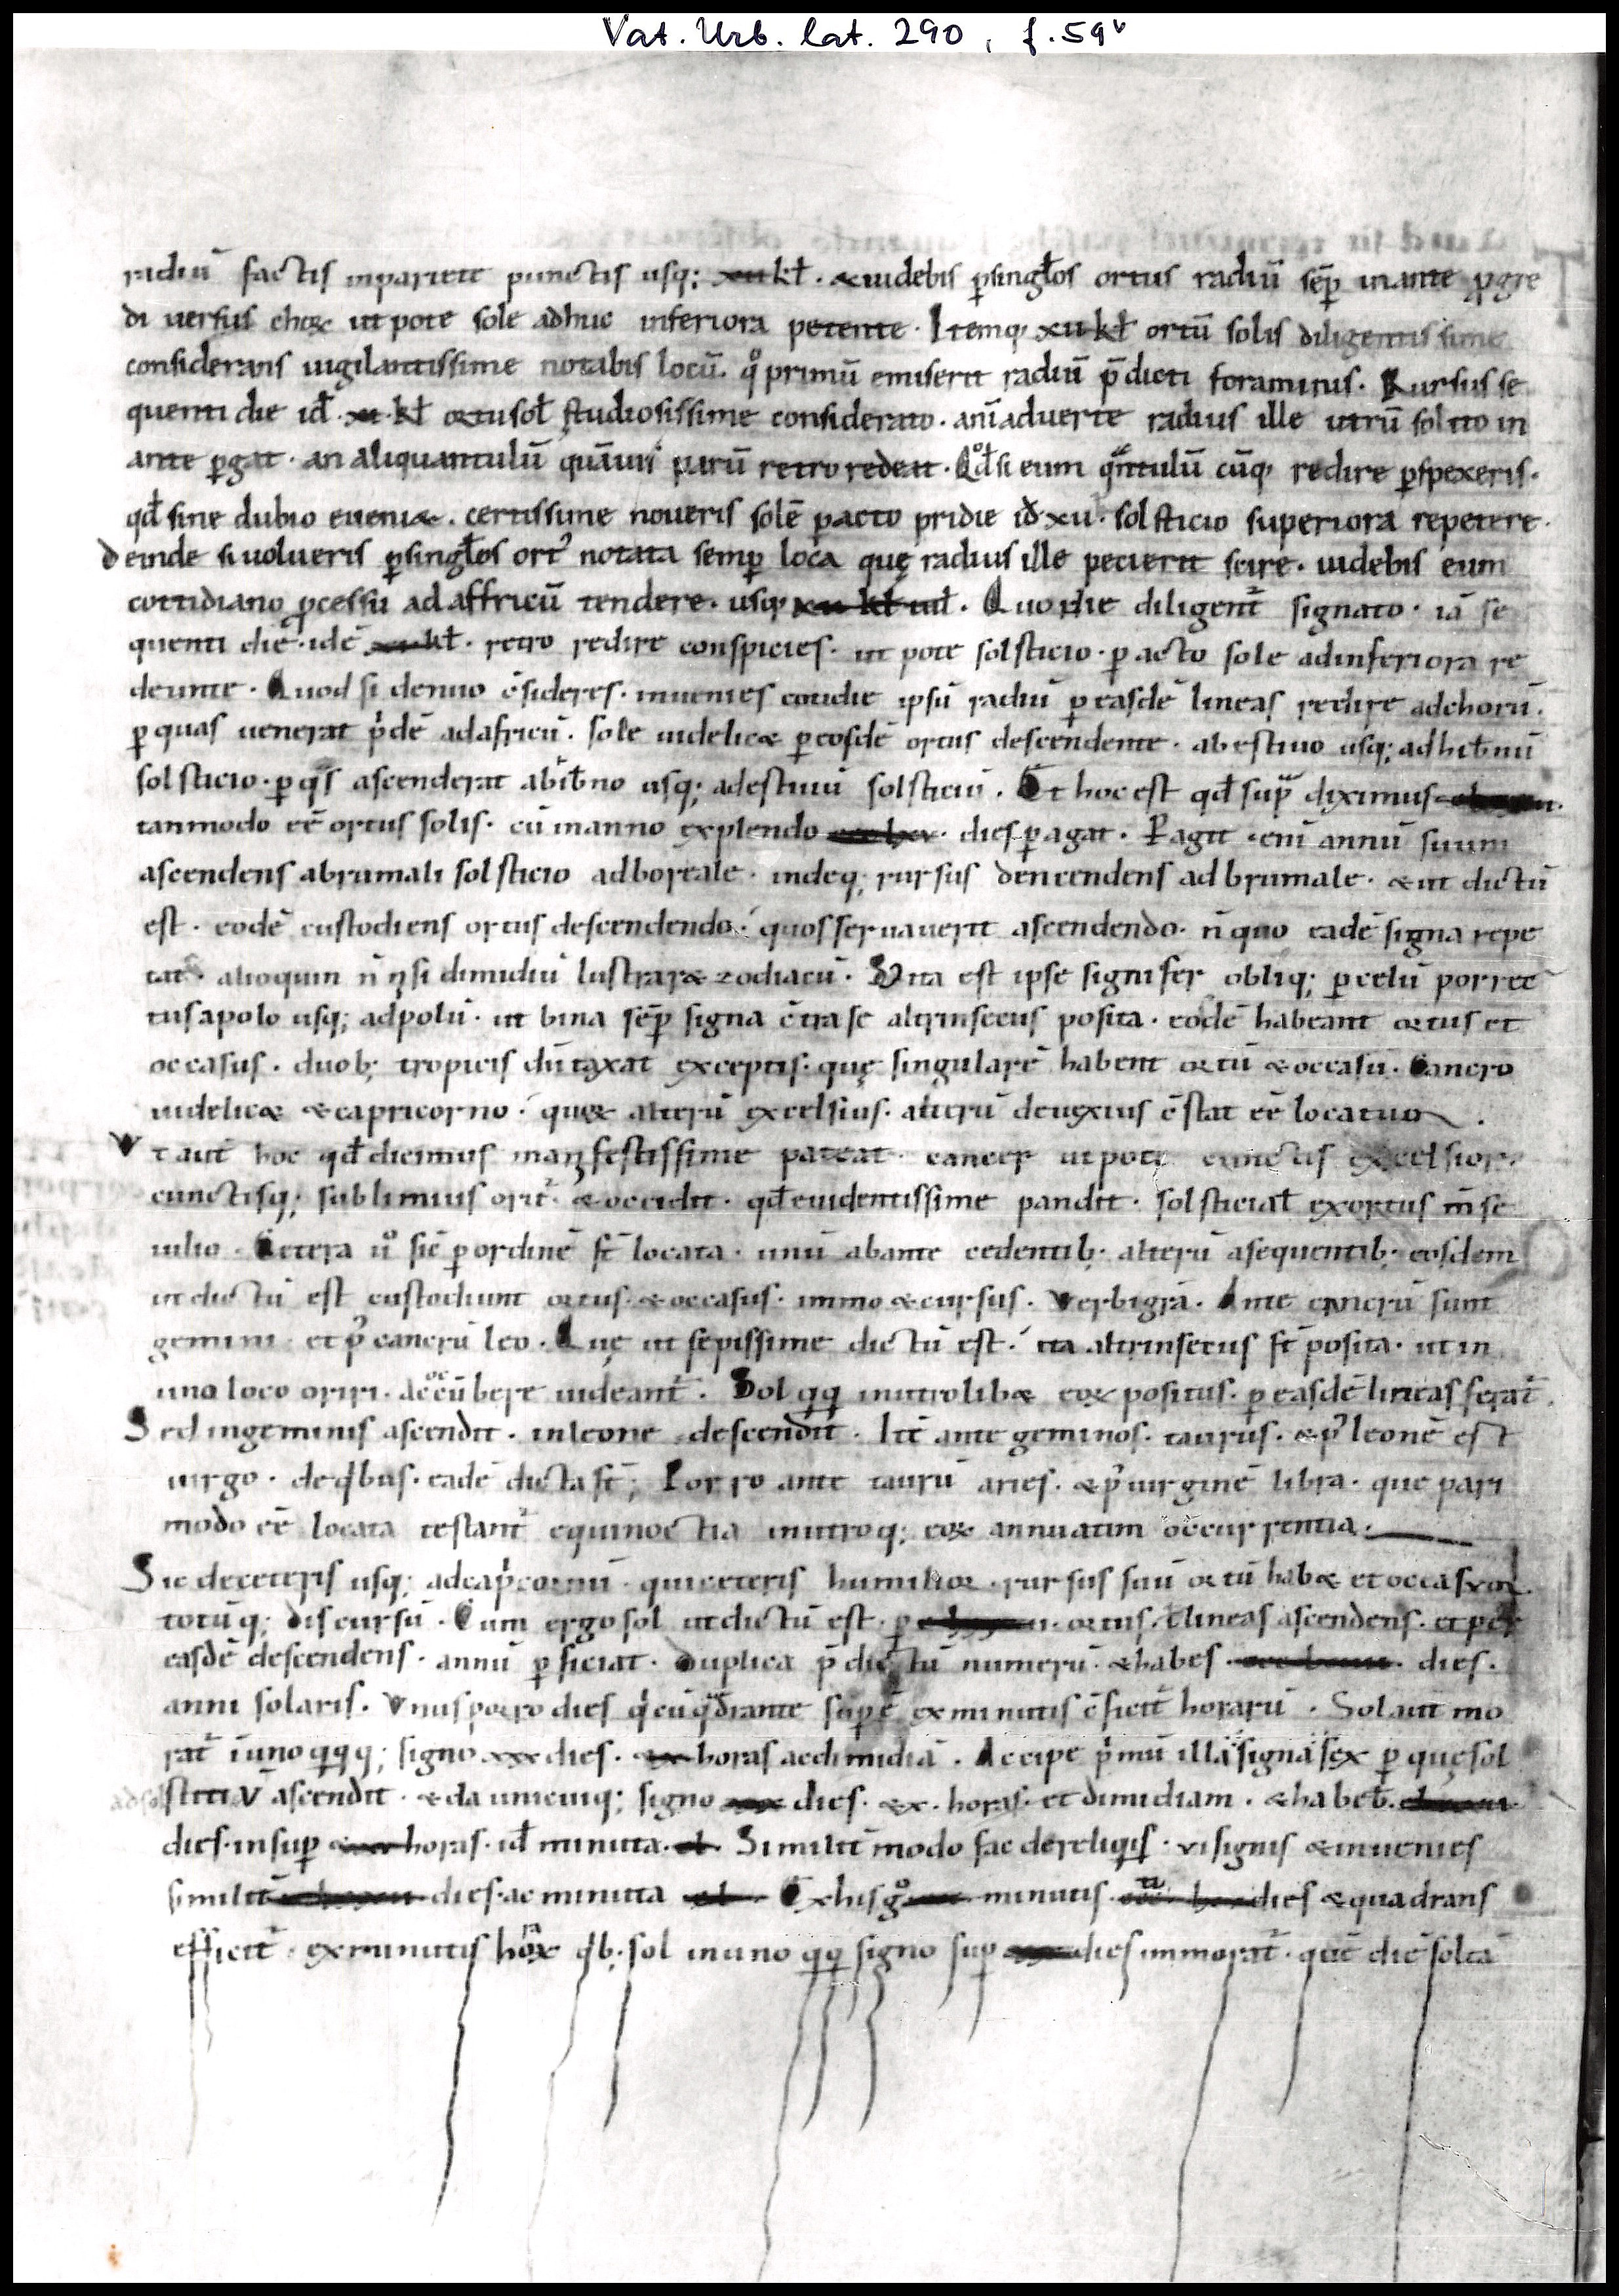 Vat. Urb. lat. 290, f. 59v
radiū factis inpariett punctis usq; xii kƚ · & uidebis ꝑsingƚos ortus radiū sēꝑ inante ꝓgre
di uersus chox utpote sole adhuc inferiora petente · Itemq; xii kƚ ortū solis diligentissime
considerans uigilantissime notabis locū. qͦ primū emiserit radiū p̄dicti foraminis. Rursus se
quenti die iđ · xi · kƚ ortu soƚ studiosissime considerato · anīaduerte radius ille utrū solito in
ante ꝑgat · an aliquantulū quāuis parū retro redeat · Qđ si eum qntulū cūq; redire ꝑspexeris ·
qđ sine dubio eueni& . certissime noueris solē ꝑacto pridie iđ xii · solsticio superiora repetere ·
deinde si uolueris ꝑsingƚos ort᾽ notata semꝑ loca quę radius ille pecierit scire · uidebis eum
cottidiano ꝓcessu ad affricū tendere · usq; xii kƚ iuƚ . Quo die diligent̄ signato · iā se
quenti die · idē kƚ . retro redire conspicies · ut pote solsticio · ꝑacto sole adinferiora re
deunte . Quod si denuo c̄sideres · inuenies cotidie ipsū radiū ꝑ easdē lineas redire adchorū .
ꝑ quas uenerat p̓dē adafricū . sole uidelic& ꝑ eosdē ortus descendente · ab estiuo usq; ad hib̄nū
solsticio · ꝑ q̓s ascenderat abib̄no usq; adestiuū solsticiū . Et hoc est qđ supͣ diximus
tanmodo eē ortus solis · cū inanno explendo dies ꝑagat . Ꝑagit enī annū suum
ascendens abrumali solsticio adboreale · indeq; rursus dencendens ad brumale · & ut dictū
est · eodē custodiens ortus descendendo · quos seruauerit ascendendo · n̄ quo eadē signa repe
tat · alioquin n̄ n̓si dimidiū lustrar& zodiacū . Vita est ipse signifer obliq; ꝑ celū porrec
tus apolo usq; adpolū · ut bina sēꝑ signa c̄tra se altrinsecus posita · eodē habeant ortus et
occasus . duob; tropicis dūtaxat exceptis · quę singularē habent ortū & occasū . Cancro
uidelic& & capricorno · quox alterū excelsius · alterū deuexius c̄stat eē locatum .
Vt aut̄ hoc qđ dicimus manifestissime pateat cancer utpote cunctis excelsior
cunctisq; sublimius orit̄ & occidit · qđ euidentissime pandit · solsticiaƚ exortus m̄se
iulio . Cetera ūͦ sic ꝑ ordinē st̄ locata · unū abante cedentib; alterū asequentib; eosdem
ut dictū est custodiunt ortus & occasus · immo & cursus . Verbigrā . Ante cancrū sunt
gemini et p̓ cancrū leo . Quę ut sepissime dictū est · ita altrinsecus st̄ posita · ut in
uno loco oriri · accūbere uideant̄ . Sol qq; inutrolib& eox positus · ꝑ easdē lineas ferat̄ .
Sed ingeminis ascendit · inleone descendit . Itē ante geminos · taurus · & p̓ leonē est
uirgo · de qbus · eadē dicta st̄ ; Porro ante taurū aries . & p̓ uirginē libra · que pari
modo eē locata testant̄ equinoctia inutroq; eox annuatim occurrentia .
Sic deceteris usq; adcap̓cornū · qui ceteris humilior · rursus suū ortū hab& et occasum
totūq; discursū . Cum ergo sol ut dictū est · ꝑ ortus · & lineas ascendens · et per
easdē descendens · annū ꝑficiat . Duplica p̄dictū numerū · & habes dies .
anni solaris . Vnus porro dies q̓ cū qdrante suꝑē ex minutis c̄ficit̄ horarū . Sol aut̄ mo
rat̄ ī uno qqq; signo xxx dies · & x horas ac dimidiā . Accipe p̓mū illa signa sex ꝑ quę sol
adsolstitiū ascendit · & da unicuiq; signo xxx dies · & x · horas · et dimidiam . & habeb̄
dies · insuꝑ & horas · iđ minuta · Similit̄ modo fac dereliqis · vi signis & inuenies
similit̄ dies · ac minuta Ex his gͦ minutis · dies & quadrans
efficit̄ · ex minutis hoͬx qb; sol inuno qq; signo suꝑ dies immorat̄ · quē diē soltā